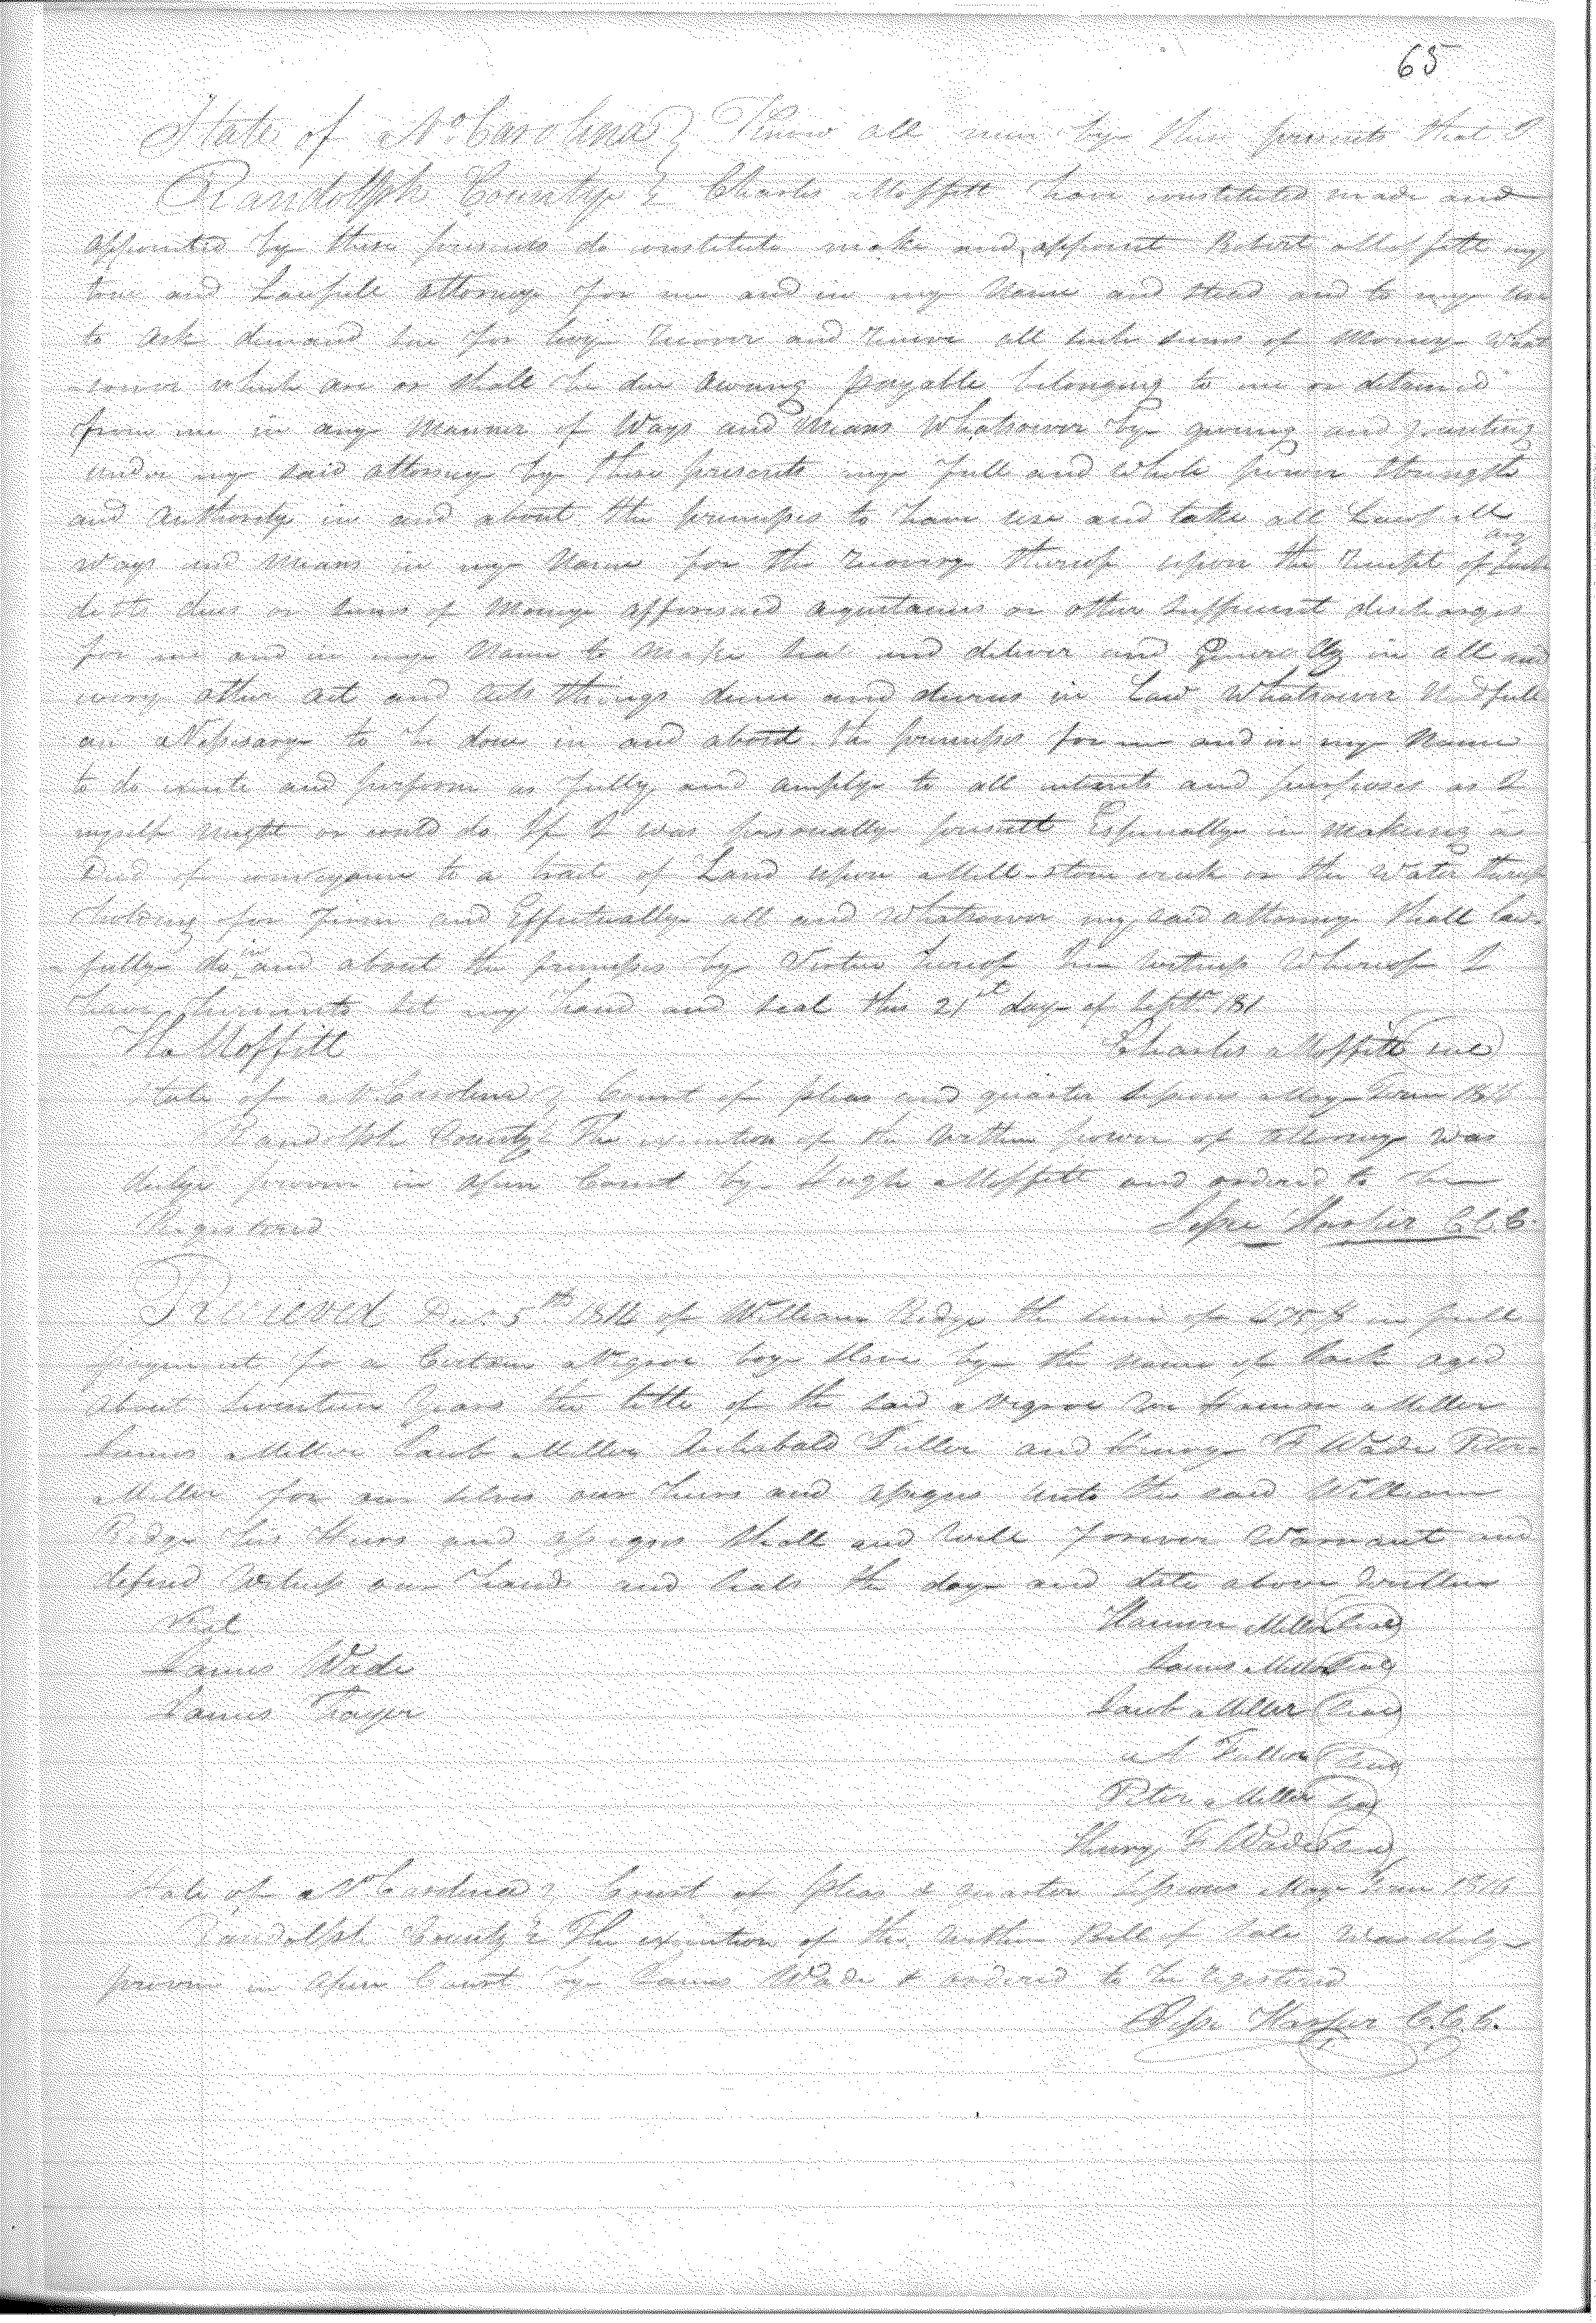 65
State of No Carolina } Know all men by these presents that I
Randolph County } Charles Moffitt have constituted made and
appointed by these presents do constitute make and appoint Robert Moffitt my
true and Lawfull attorney for me and in my Name and stead and to my use
to ask demand sue for levy recover and receive all such sums of Money what
-soever which are or shall be due owing payable belonging to me or detained
from me in any Manner of Ways and Means Whatsoever by giving and granting
under my said attorney by these presents my full and whole power strength
and authority in and about the premises to have use and take all Lawfull
ways and Means in my Name for the recovery thereof upon the receipt of any such
debts dues or sums of Money afforesaid aquitances or other sufficient discharges
for me and in my Name to make seal and deliver and Generally in all and
every other act and acts things devise and devises in Law Whatsoever Needfull
an Nessary to be done in and about the premises for me and in my Name
to do execute and perform as fully and amply to all intents and purposes as I
myself might or could do If I was personally present Especially in Making a
Deed of conveyance to a tract of Land upon Mill-stone creek on the Water thereof
holding for firm and Effectually all and whatsoever my said attorney shall law-
-fully do in and about the premises by Virtue hereof In witness Whereof I
have hereunto set my hand and seal this 21st day of Septr 181
Charles Moffitt seal
Ho Moffitt
State of N Carolina } Court of pleas and quarter sessions May Term 1816
Randolph County } The execution of the within power of attorney was
duly proven in open Court by Hugh Moffitt and ordered to be
Registered Jesse Harper C.C.C.
Received Dec. 5th 1814 of William Ridge the sum of 475 $ in full
payment for a Certain Negroe boy slave by the name of Jack aged
about seventeen Years the title of the said Negroe We Hamon Miller
James Miller Jacob Miller Archabald Fuller and Henry F Wade Peter
Miller for our selves our heirs and assigns unto the said William
Ridge his Heirs and assigns shall and will forever Warrant and
defend Witness our hands and seals the day and date above written
Test Hamon Miller Seal
James Wade James Miller Seal
James Frayer Jacob Miller Seal
A Fuller Seal
Peter Miller Seal
Henry F Wade Seal
State of No Carolina } Court of pleas & quarter sessions May Term 1816
Randolph County } The execution of the within Bill of Sale was duly
proven in open Court by James Wade & ordered to be registered
Jesse Harper C.C.C.